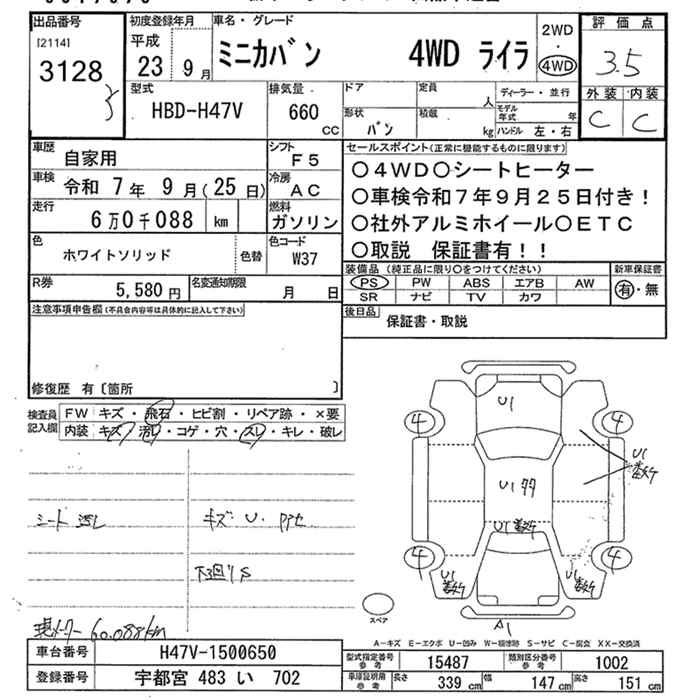 出品番号
[2114]
3128
初度登録年月
平成
23 9月
車名・グレード
ミニカバン 4WD ライラ
2WD
・
4WD
評価点
3.5
外装 内装
C C
型式
HBD-H47V
排気量
660
CC
ドア
形状
バン
定員
人
積載
kg
ディーラー・並行
モデル年式 年
ハンドル 左・右
車歴
自家用
シフト
F5
車検 令和 7年 9月(25日)
冷房
AC
走行
6万0千088 km
燃料
ガソリン
色
ホワイトソリッド
色替
色コード
W37
R券
5,580円
名変通知期限
月 日
セールスポイント(正常に機能するものに限ります)
○4WD○シートヒーター
○車検令和7年9月25日付き!
○社外アルミホイール○ETC
○取説 保証書有!!
装備品(純正品に限り○をつけてください)
PS PW ABS エアB AW
SR ナビ TV カワ
新車保証書
有・無
後日品
保証書・取説
注意事項申告欄(不具合内容等は具体的に記入して下さい)
修復歴 有〔箇所 〕
検査員記入欄
FW キズ・飛石・ヒビ割・リペア跡・×要
内装 キズ・汚れ・コゲ・穴・スレ・キレ・破レ
シート
キズ U
下廻りS
60.088km
U1
4 4
U1
U1
U1
4 4
U1
U1
スペア
A1
A-キズ E-エクボ U-凹み W-補修跡 S-サビ C-腐食 XX-交換済
車台番号 H47V-1500650
登録番号 宇都宮 483 い 702
型式指定番号
参考
15487
類別区分番号
参考
1002
車庫証明用
参考
長さ 339 cm 幅 147 cm 高さ 151 cm